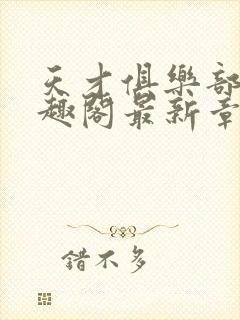 天才俱樂部
趣閣最新章
錯不多